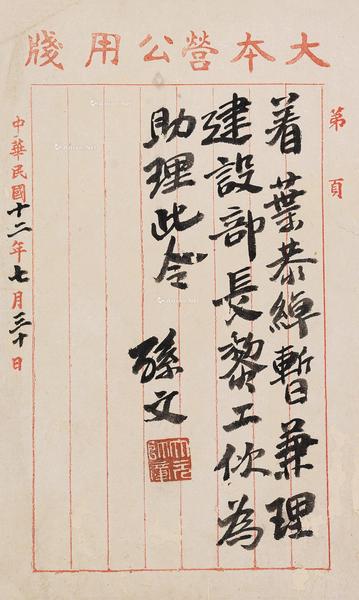 大本營公用牋
第 頁
着葉恭綽暫兼理
建設部長黎工佽為
助理此令
孫文
大元帥章
中華民國十二年七月三十日